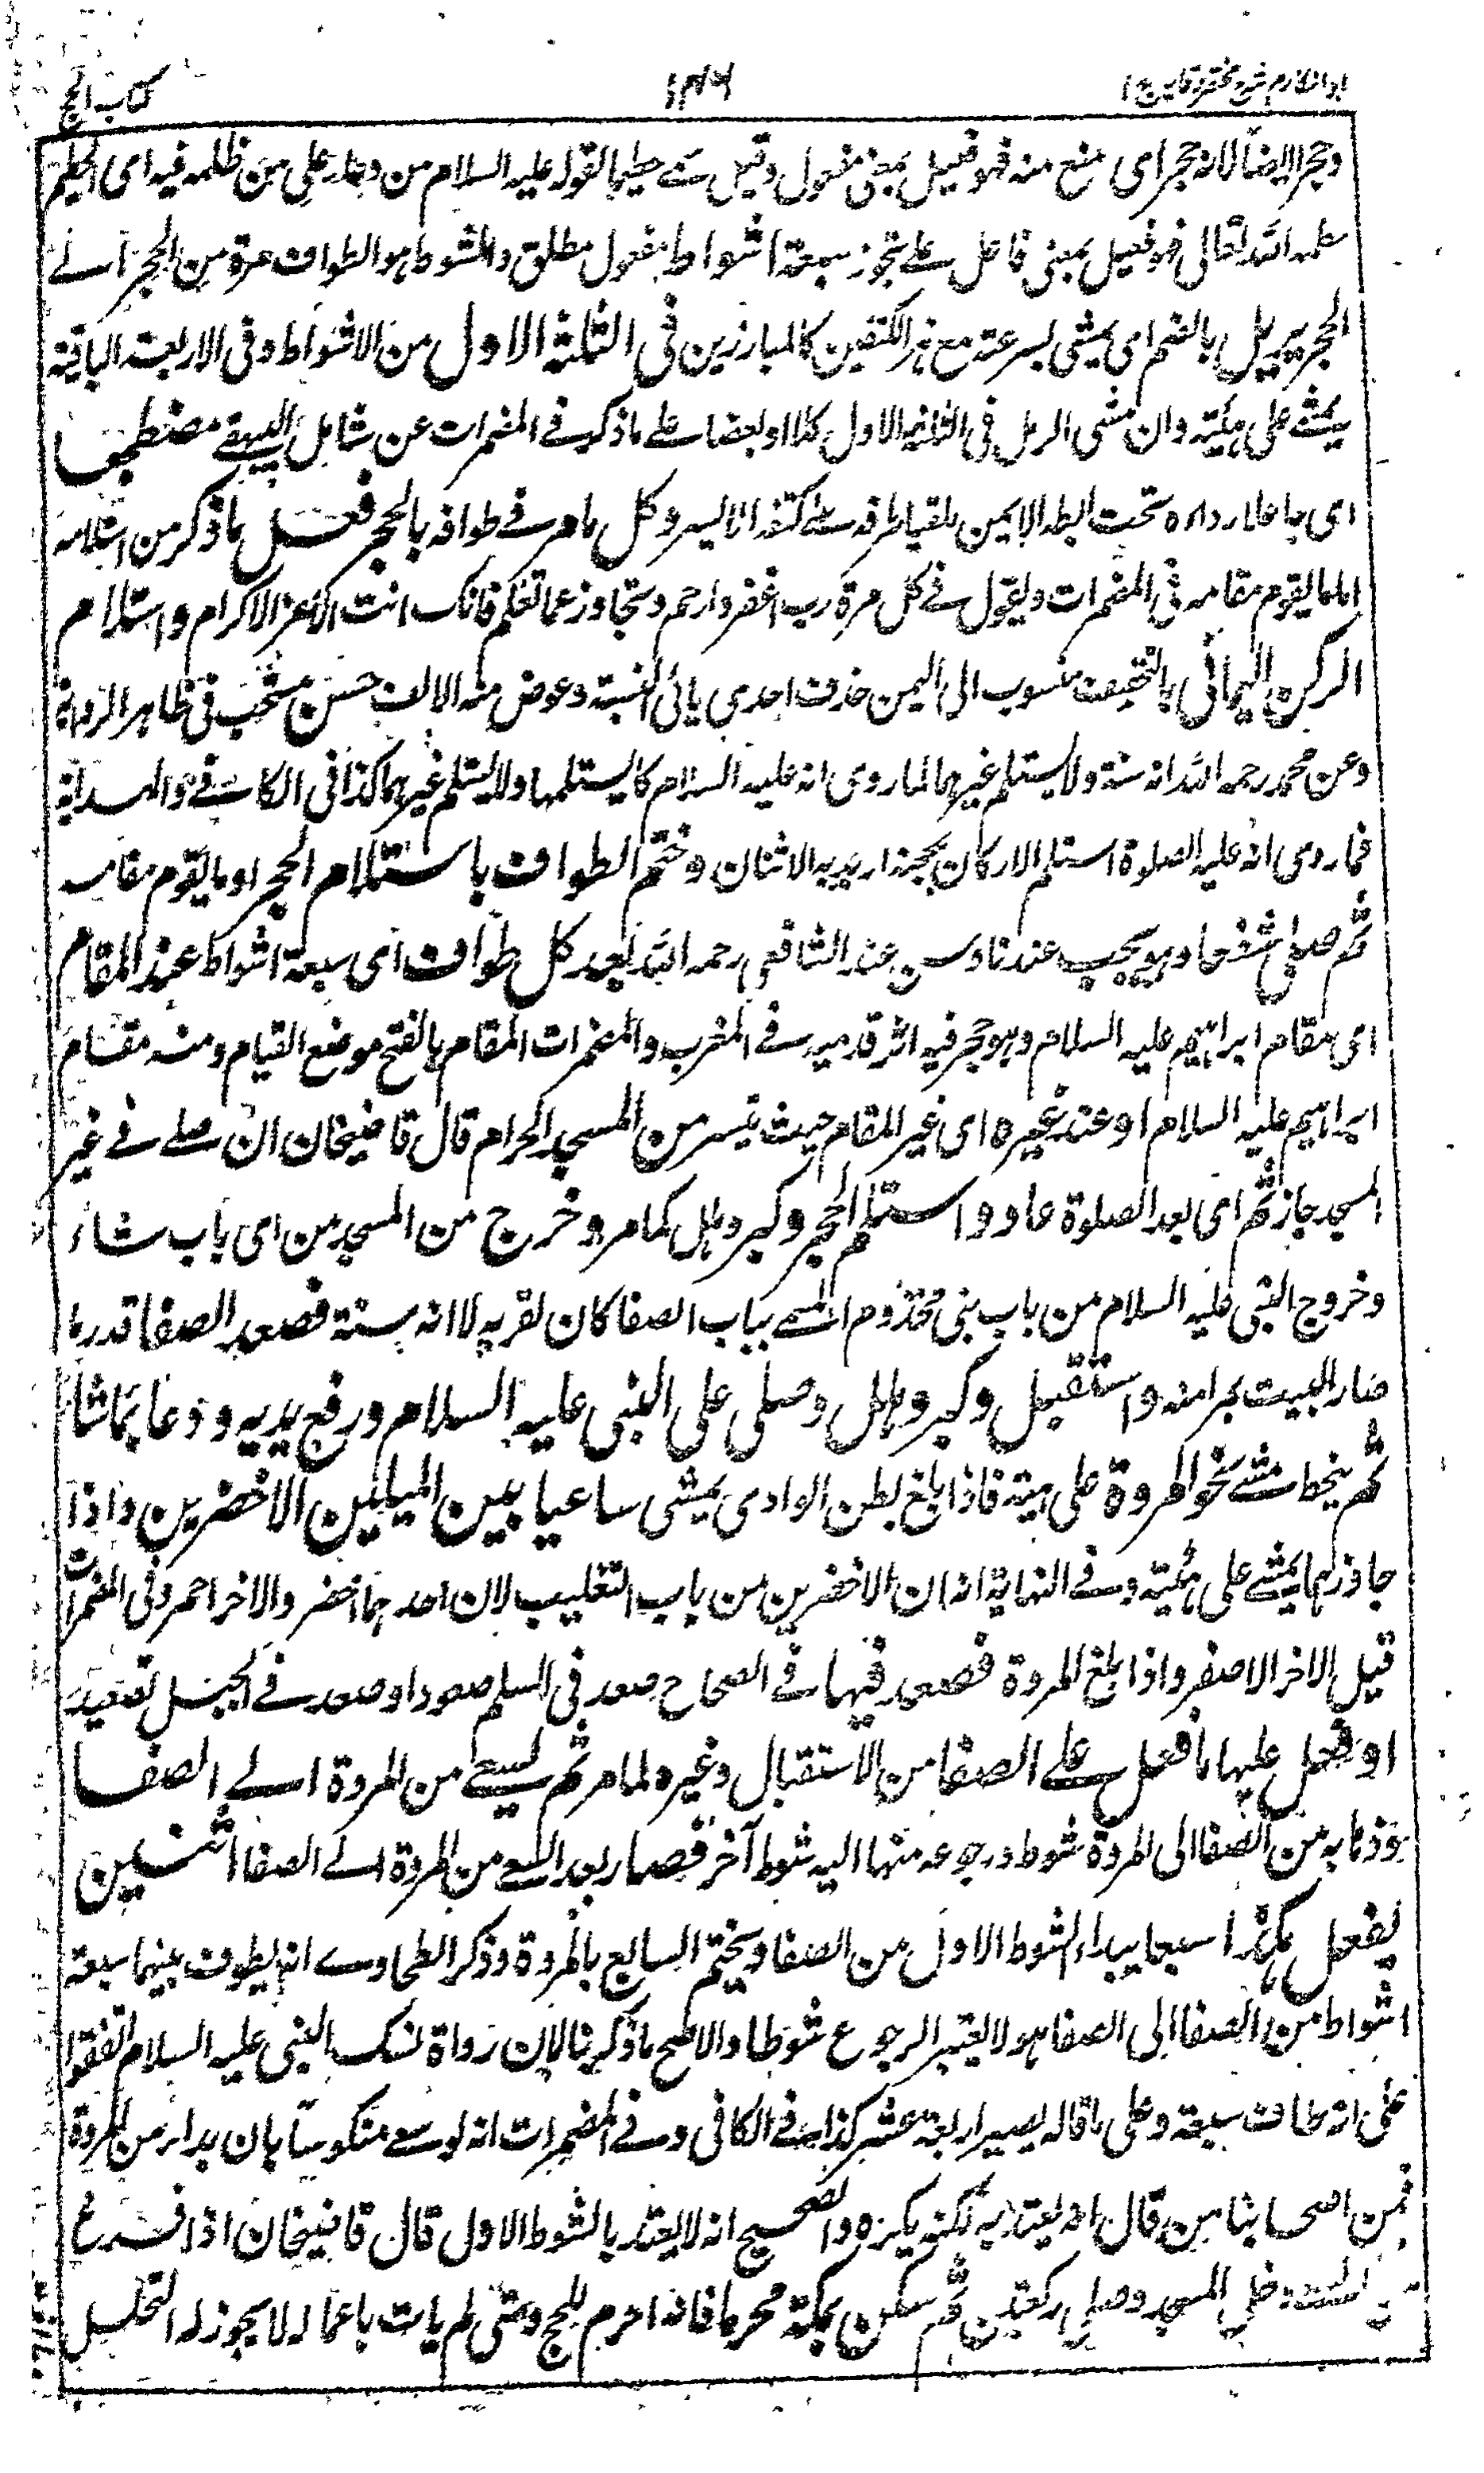 ابو المكارم شرح مختصر وقاية ج ١ ١٣٦ كتاب الحج
وحجرا ايضا لانه حجر اى منع منه فهو فعيل بمعنى مفعول وقيل سمى حطيما لقوله عليه السلام من دعا على من ظلمه فيه اى الحطيم
حطمه الله تعالى فهو فعيل بمعنى فاعل على تجوز سبعة اشواط مفعول مطلق والشوط هو الطواف مرة من الحجر الى
الحجر يرمل بالضم اى يمشى بسرعة مع هز الكتفين كالمبارزين فى الثلثة الاول من الاشواط وفى الاربعة الباقية
يمشى على هيئته وان مشى الرمل فى الثلثة الاول كلا او بعضا على ما ذكر فى المضمرات عن شامل البيهقى مضطبعا
اى جاعلا رداءه تحت ابطه الايمن ملقيا طرفه على كتفه الايسر وكل ما مر فى طوافه بالحجر فعل ما ذكر من استلامه
او ما يقوم مقامه فى المضمرات ويقول فى كل مرة رب اغفر وارحم وتجاوز عما تعلم فانك انت الاعز الاكرام واستلام
الركن اليمانى بالتخفيف منسوب الى اليمن حذف احدى يائى النسبة وعوض منه الالف حسن مستحب فى ظاهر الرواية
وعن محمد رحمه الله انه سنة ولا يستلم غيرهما لما روى انه عليه السلام كان يستلمهما ولا يستلم غيرهما كذا فى الكافى والهداية
فما روى انه عليه الصلوة استلم الاركان بمحجنه اريد به الاثنان وختم الطواف باستلام الحجر او ما يقوم مقامه
ثم صلى شفعا وهو يجب عندنا وسن عند الشافعى رحمه الله بعد كل طواف اى سبعة اشواط عند المقام
اى مقام ابراهيم عليه السلام وهو حجر فيه اثر قدميه فى المغرب والمضمرات المقام بالفتح موضع القيام ومنه مقام
ابراهيم عليه السلام او عند غيره اى غير المقام حيث تيسر من المسجد الحرام قال قاضيخان ان صلى فى غير
المسجد جاز ثم اى بعد الصلوة عاد واستلم الحجر وكبر وهلل كما مر وخرج من المسجد من اى باب شاء
وخروج النبى عليه السلام من باب بنى مخزوم المسمى بباب الصفا كان لقربه لا انه سنة فصعد الصفا قدر ما
صار البيت بمرا منه واستقبل وكبر وهلل وصلى على النبى عليه السلام ورفع يديه ودعا بما شاء
ثم ينحط مشى نحو المروة على هيئة فاذا بلغ بطن الوادى يمشى ساعيا بين الميلين الاخضرين واذا
جاوزهما يمشى على هيئته وفى النهاية انه ان الاخضرين من باب التغليب لان احدهما اخضر والاخر احمر وفى المضمرات
قيل الاخر الاصفر واذا بلغ المروة فصعد فيها فى الصحاح صعد فى السلم صعودا وصعد فى الجبل تصعيدا
او فعل عليها ما فعل على الصفا من الاستقبال وغيره لما مر ثم يسعى من المروة الى الصفا
فذهابه من الصفا الى المروة شوط ورجوعه منها اليه شوط آخر فصار بعد السعى من المروة الى الصفا اثنين
يفعل هكذا سبعا يبدا الشوط الاول من الصفا ويختم السابع بالمروة وذكر الطحاوى انه يطوف بينهما سبعة
اشواط من الصفا الى الصفا هو لا يعتبر الرجوع شوطا والاصح ما ذكرنا لان رواة نسك النبى عليه السلام اتفقوا
على انه طاف سبعة وعلى ما قاله يصير اربعة عشر كذا فى الكافى وفى المضمرات انه لو سعى منكوسا بان بدا من المروة
فمن اصحابنا من قال انه يعتد به لكنه يكره والصحيح انه لا يعتد بالشوط الاول قال قاضيخان اذا فرغ
من السعى دخل المسجد وصلى ركعتين ثم سكن بمكة محرما فانه احرم للحج ومتى لم يات باعماله لا يجوز له التحليل